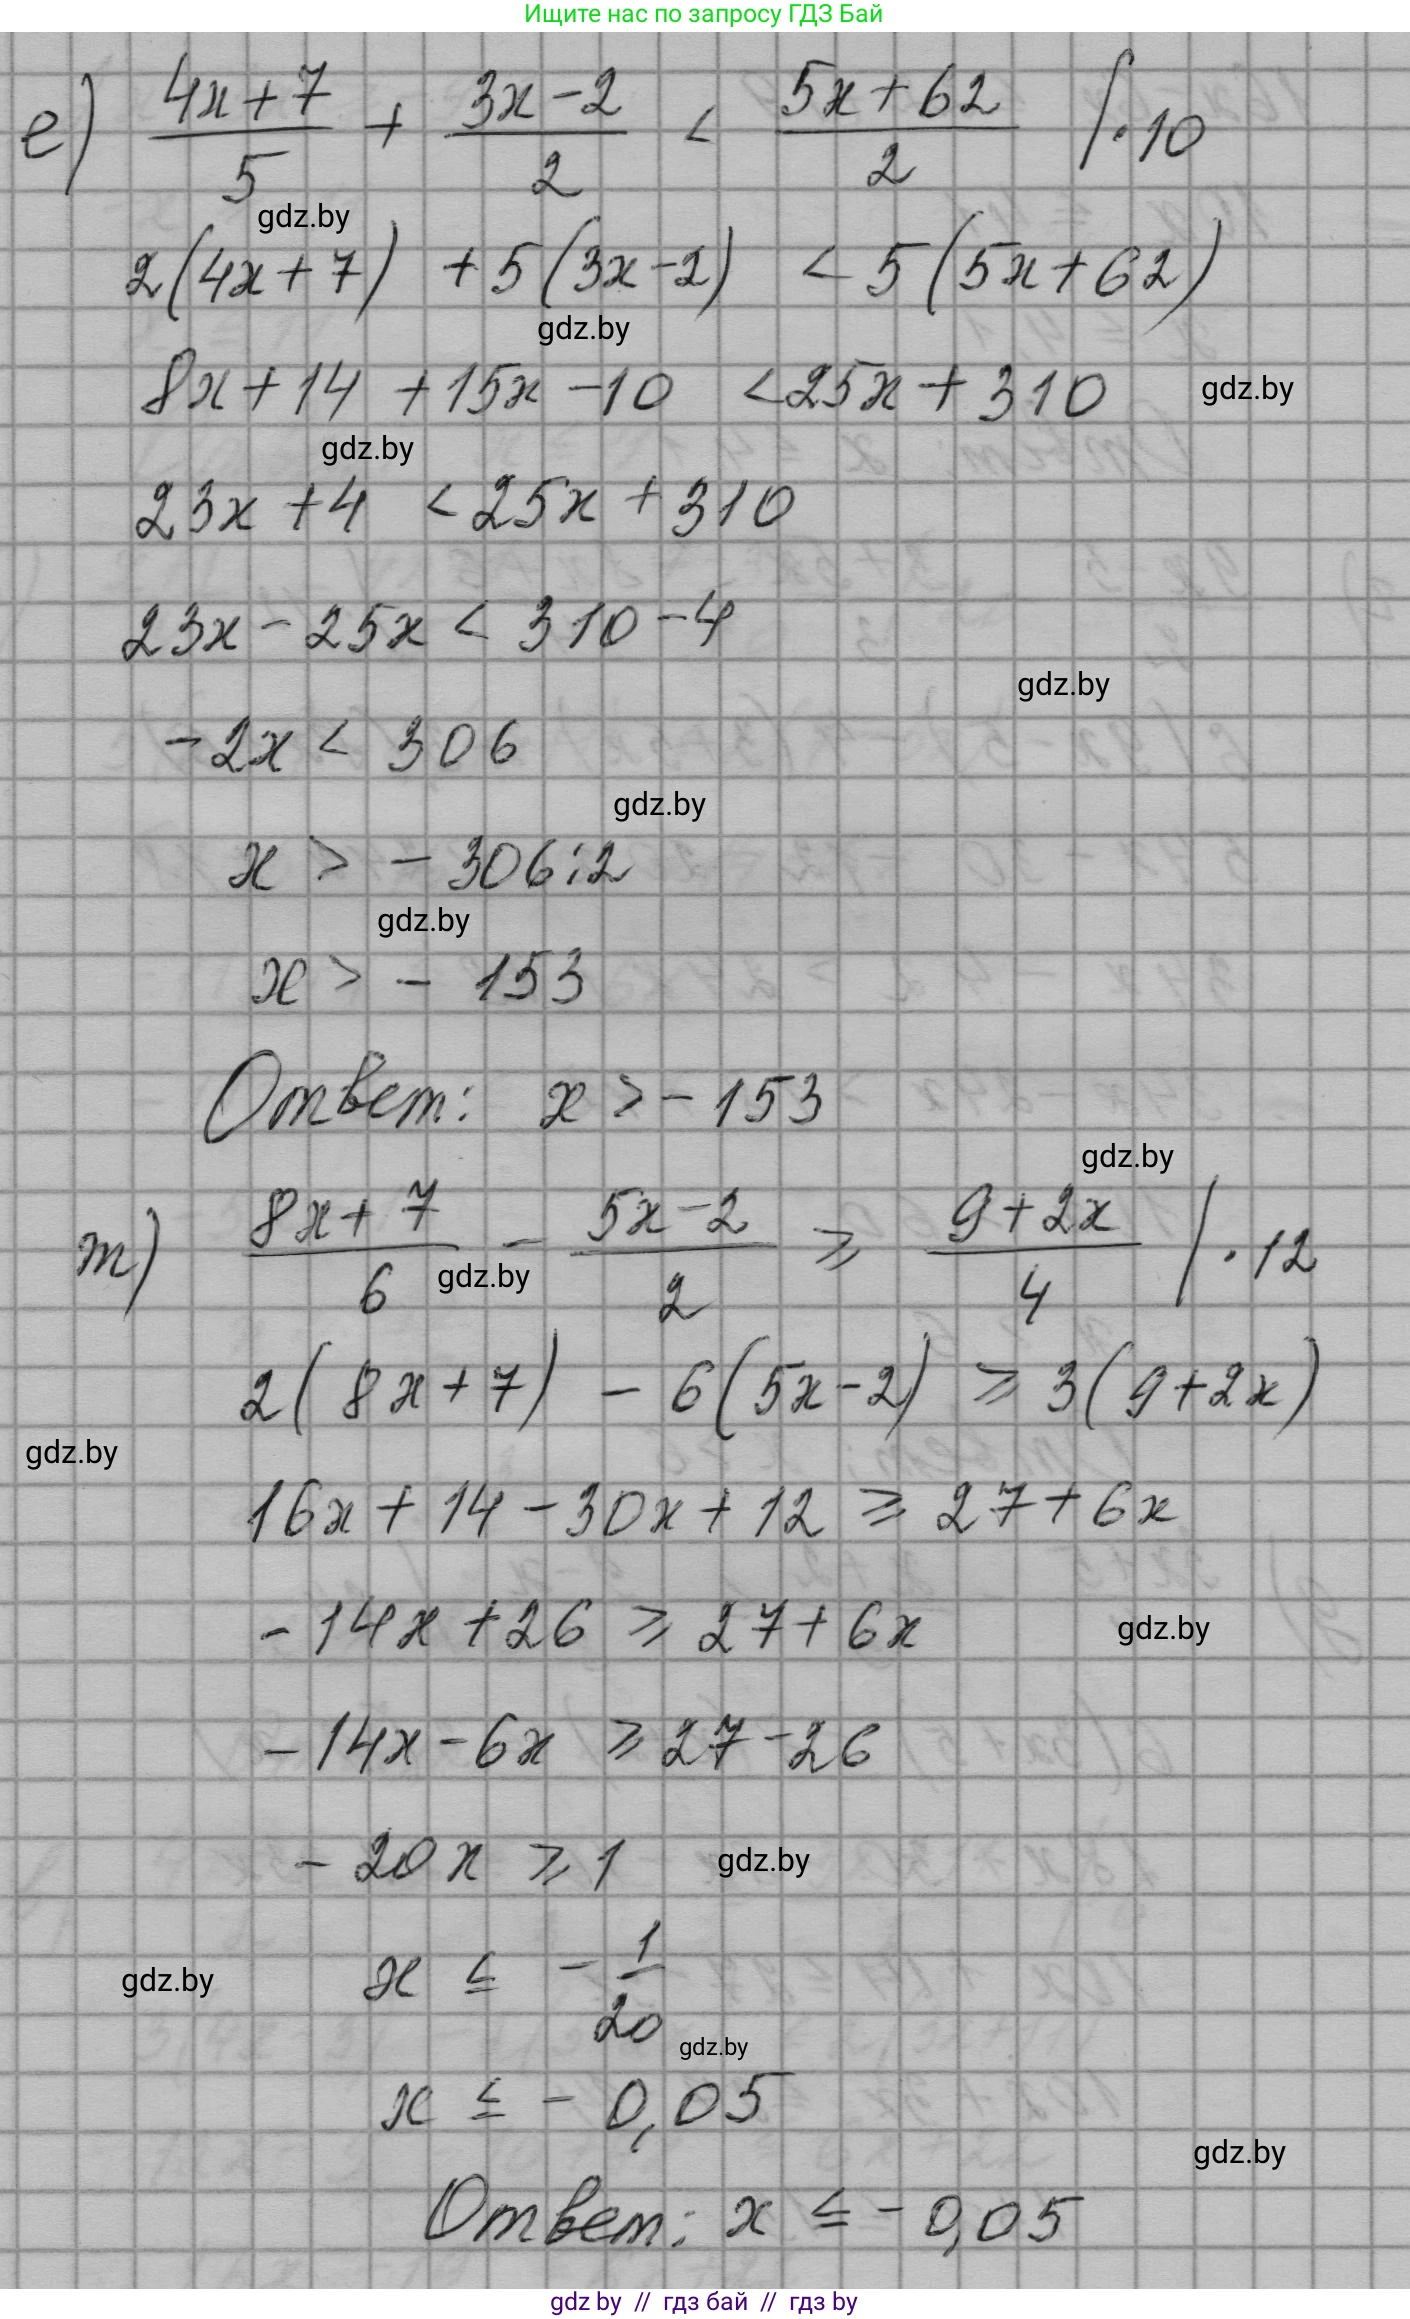 Ищите нас по запросу ГДЗ Бай
е) (4x+7)/5 + (3x-2)/2 < (5x+62)/2 / ·10
gdz.by
2(4x+7) +5(3x-2) <5(5x+62)
gdz.by
8x+14 +15x-10 <25x+310
gdz.by
gdz.by
23x+4 <25x+310
23x-25x< 310-4
gdz.by
-2x< 306
gdz.by
x > -306:2
gdz.by
x > - 153
Ответ: x >-153
gdz.by
т) (8x+7)/6 - (5x-2)/2 ⩾ (9+2x)/4 / ·12
gdz.by
2(8x+7) - 6(5x-2) ⩾ 3(9+2x)
gdz.by
16x+14-30x+12 ⩾ 27+6x
-14x+26 ⩾ 27+6x
gdz.by
-14x-6x ⩾ 27-26
-20x ⩾ 1
gdz.by
x ≤ - 1/20
gdz.by
gdz.by
x ≤ - 0,05
gdz.by
Ответ: x ≤ -0,05
gdz by // гдз бай // гдз by